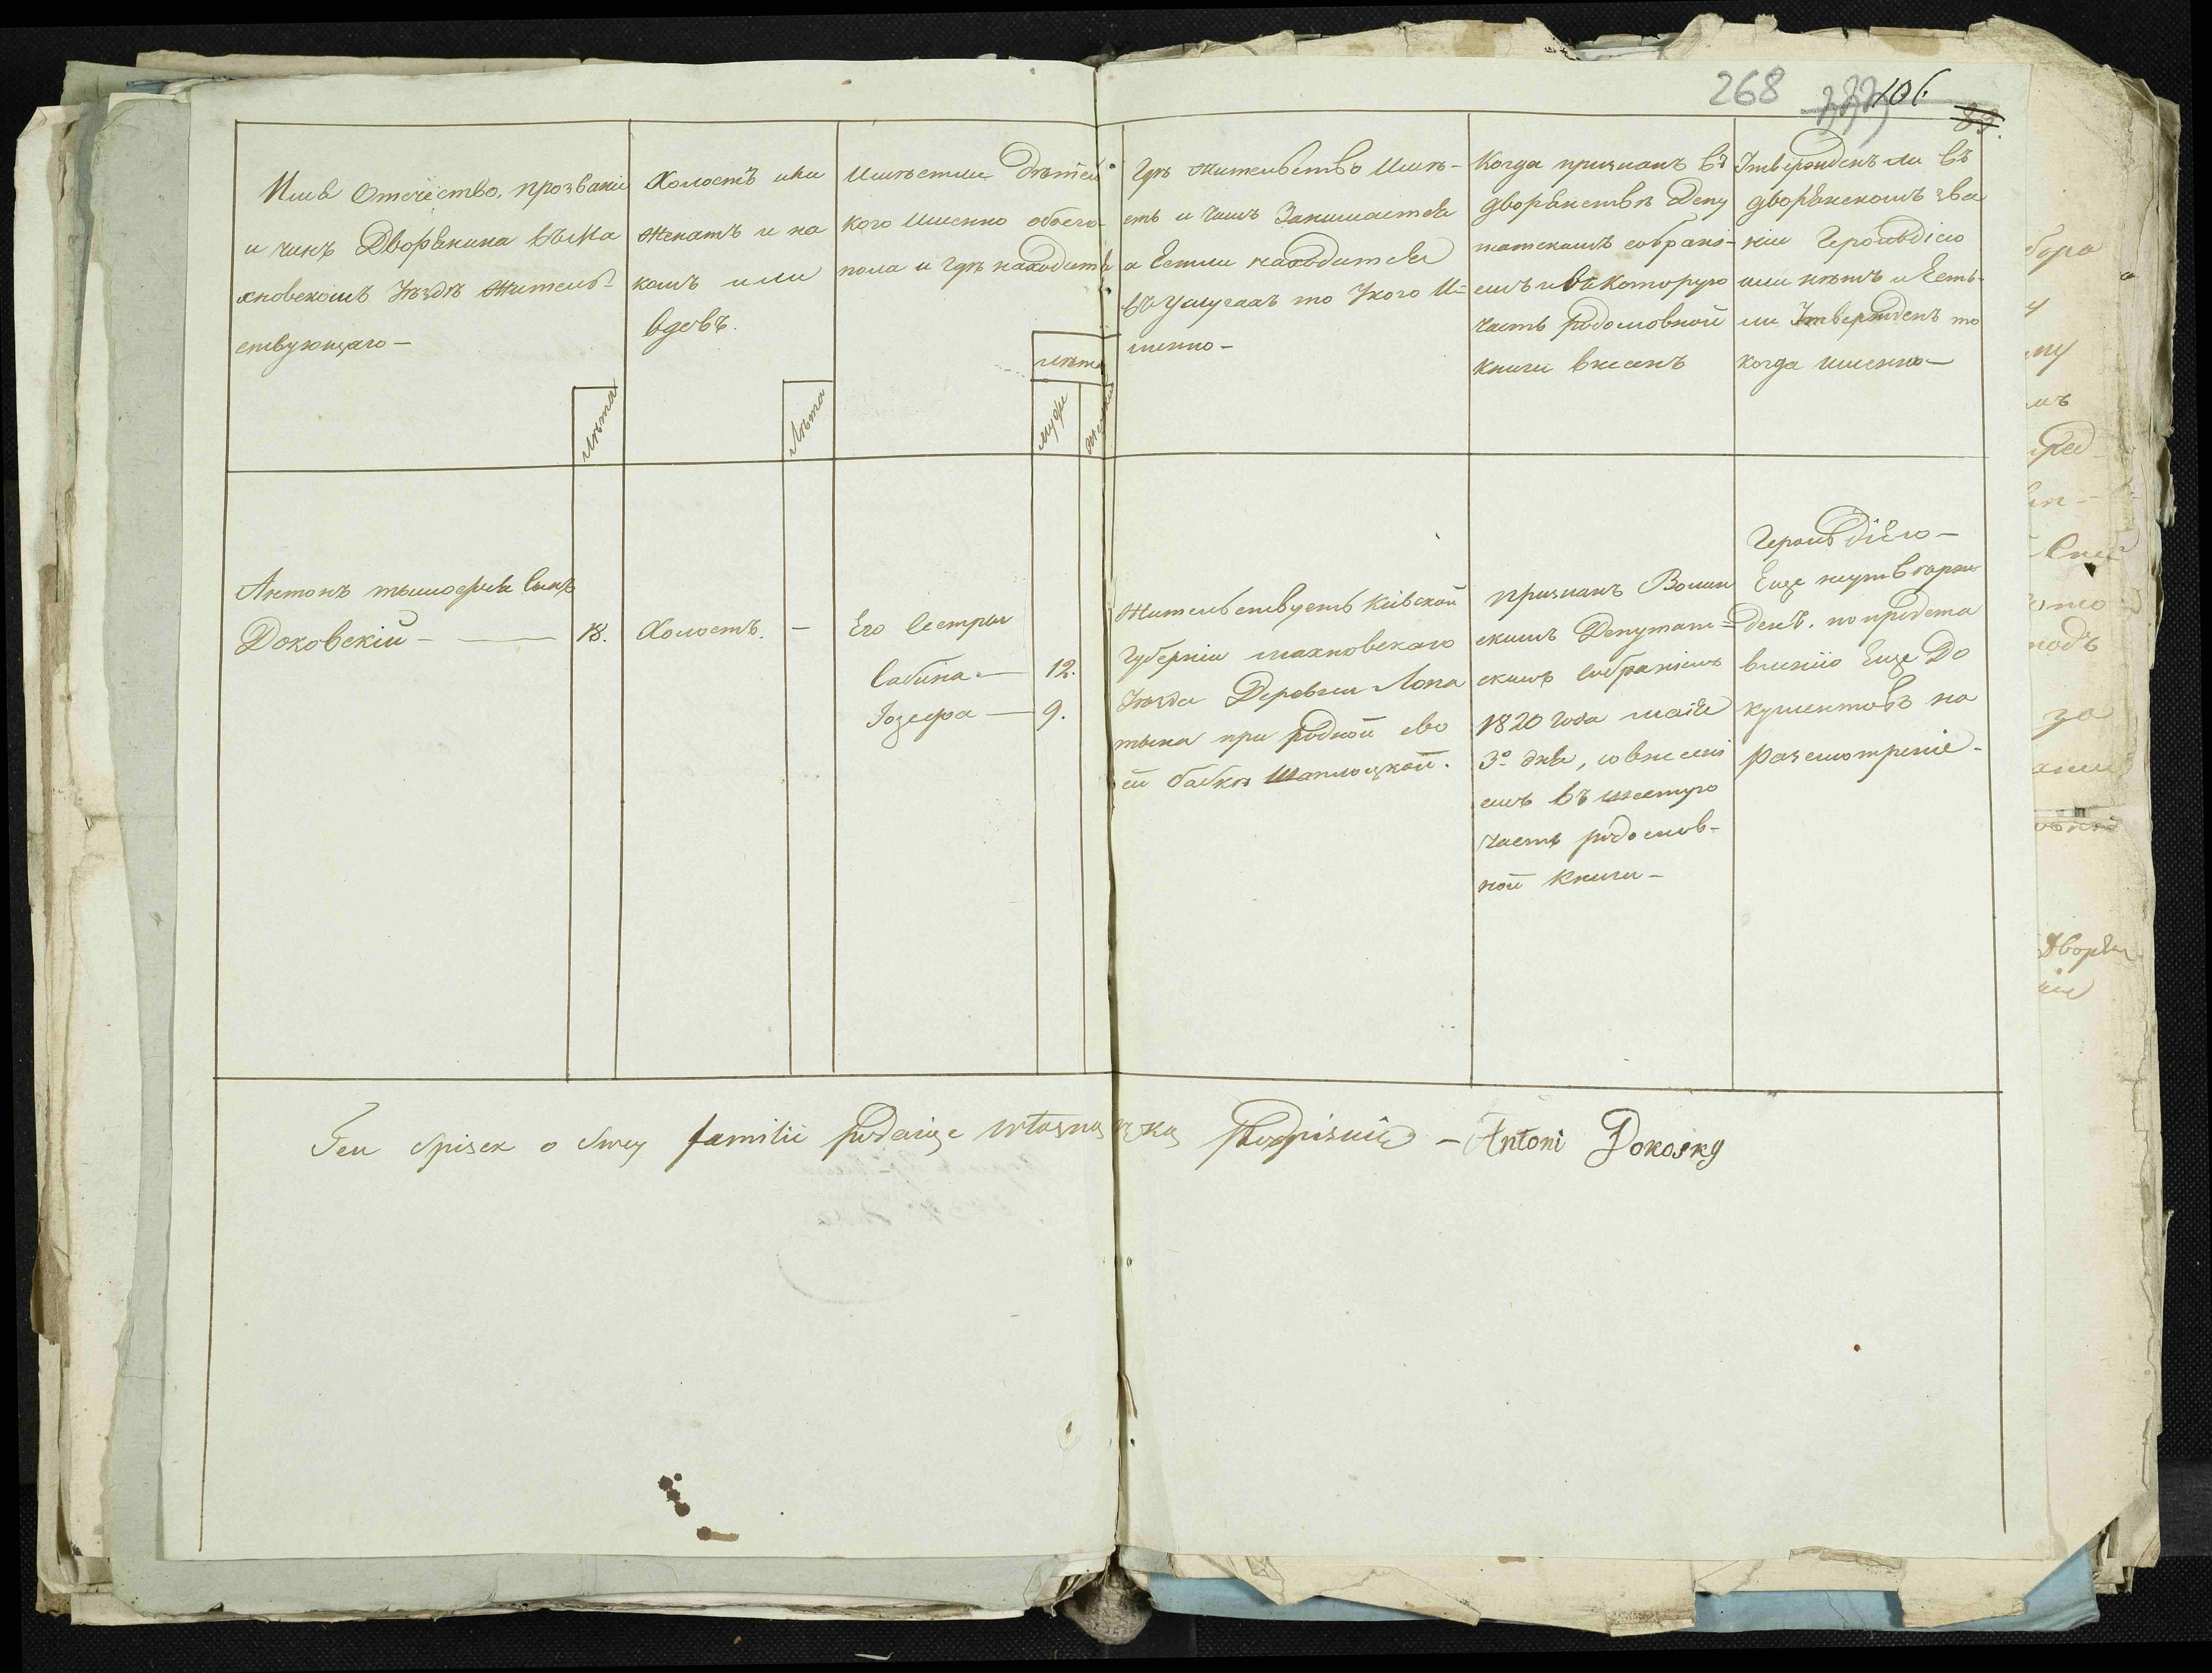 268
106.
89.
Имя Отечество, прозваніе
и чинъ Дворянина въ Ма
хновскомъ Уѣздѣ житель-
ствующаго —
Лѣта
Холостъ или
женатъ и на
комъ или
вдовъ.
Лѣта
Имѣетли дѣтей
кого именно обоего
пола и гдѣ находится
лѣта
муже
Гдѣ жительство имѣ-
етъ и чимъ занимается
а Естли находится
въ услугахъ то Укого И-
менно —
Когда признанъ въ
дворянствѣ Депу
татскимъ собрані-
емъ и въ которую
часть родословной
книги внесенъ
Утвержденъ ли въ
дворянскомъ зва
ніи Герольдіею
или нѣтъ и Есть-
ли Утвержденъ то
когда именно —
Антонъ тымофея сынъ
Доковскій — 18.
Холостъ. —
Его Сестры
Сабина — 12.
Іозефа — 9.
Жительствуетъ Кіевской
Губерніи махновскаго
Уѣзда Деревни Лопа
тына при родной сво
ей бабки Шаплоцкой.
признанъ Волин
скимъ Депутат=
скимъ собраніемъ
1820 года маія
3º дня, со внесені
емъ въ шестую
часть родослов-
ной книги —
Герольдіею —
Еще неутверж
денъ. по предста
вленію Еще До
кументовъ на
разсмотреніе —
Ten Spisek o Swey familii podaiąc własną ręką Podpisuię — Antoni Dokosky